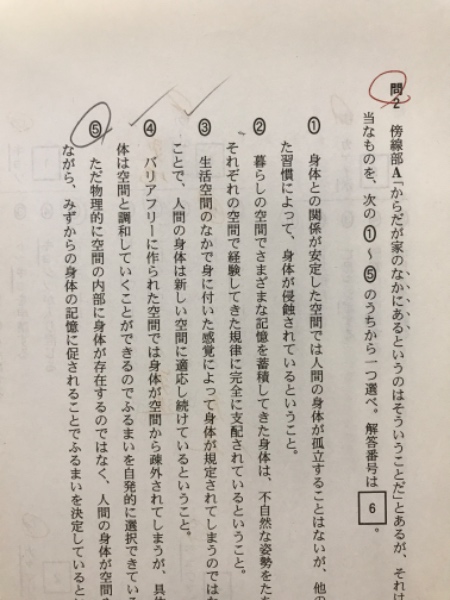 問2 傍線部A「からだが家のなかにあるというのはそういうことだ」とあるが、それは
当なものを、次の①～⑤のうちから一つ選べ。解答番号は 6 。
① 身体との関係が安定した空間では人間の身体が孤立することはないが、他の
た習慣によって、身体が侵蝕されているということ。
② 暮らしの空間でさまざまな記憶を蓄積してきた身体は、不自然な姿勢をた
それぞれの空間で経験してきた規律に完全に支配されているということ。
③ 生活空間のなかで身に付いた感覚によって身体が規定されてしまうのでは
ことで、人間の身体は新しい空間に適応し続けているということ。
④ バリアフリーに作られた空間では身体が空間から疎外されてしまうが、具
体は空間と調和していくことができるのでふるまいを自発的に選択できている
⑤ ただ物理的に空間の内部に身体が存在するのではなく、人間の身体が空間
ながら、みずからの身体の記憶に促されることでふるまいを決定していると